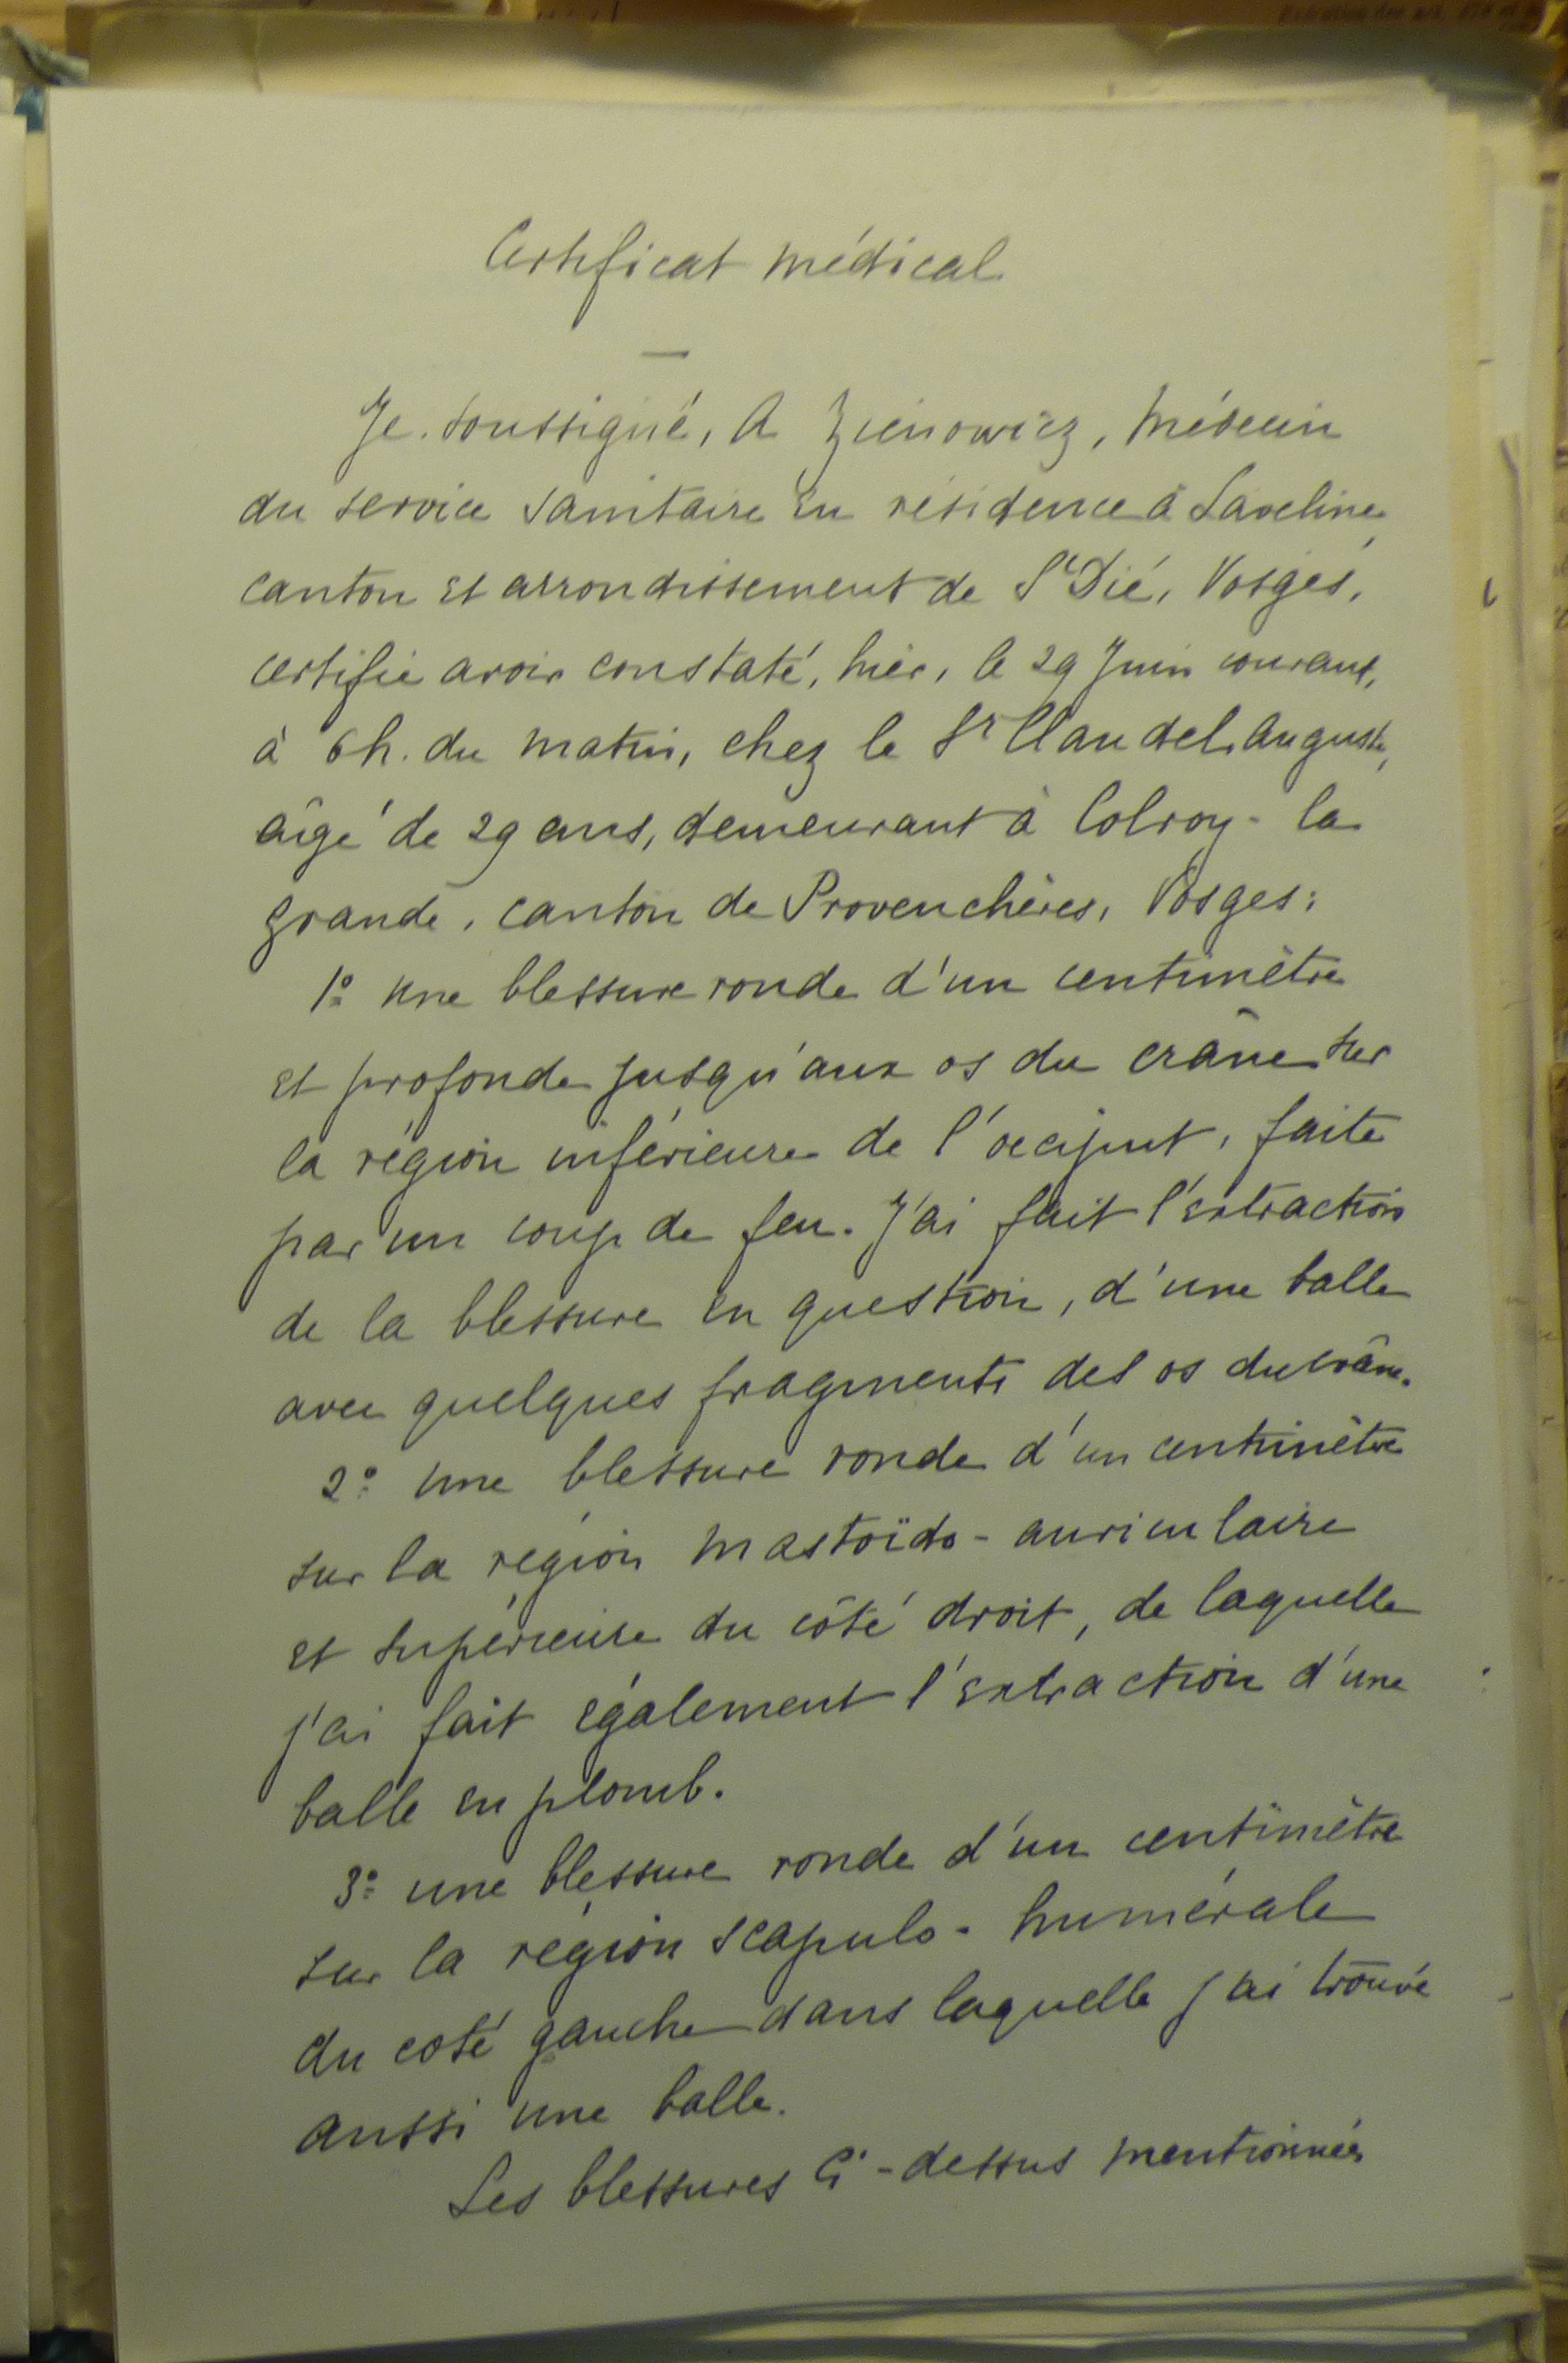 Certificat médical
Je soussigné, A Zienowicz, Médecin
du service sanitaire en résidence à Laveline
canton et arrondissement de St Dié, Vosges,
certifie avoir constaté, hier, le 29 Juin courant,
à 6h. du matin, chez le Sr Claudel Auguste,
âgé de 29 ans, demeurant à Colroy-la
grande, canton de Provenchères, Vosges:
1º une blessure ronde d'un centimètre
et profonde jusqu'aux os du crâne sur
la région inférieure de l'occiput, faite
par un coup de feu. J'ai fait l'extraction
de la blessure en question, d'une balle
avec quelques fragments des os du crâne.
2º une blessure ronde d'un centimètre
sur la région mastoïdo-auriculaire
et supérieure du côté droit, de laquelle
j'ai fait également l'extraction d'une
balle en plomb.
3º une blessure ronde d'un centimètre
sur la région scapulo-humérale
du coté gauche dans laquelle j'ai trouvé
aussi une balle.
Les blessures ci-dessus mentionnées